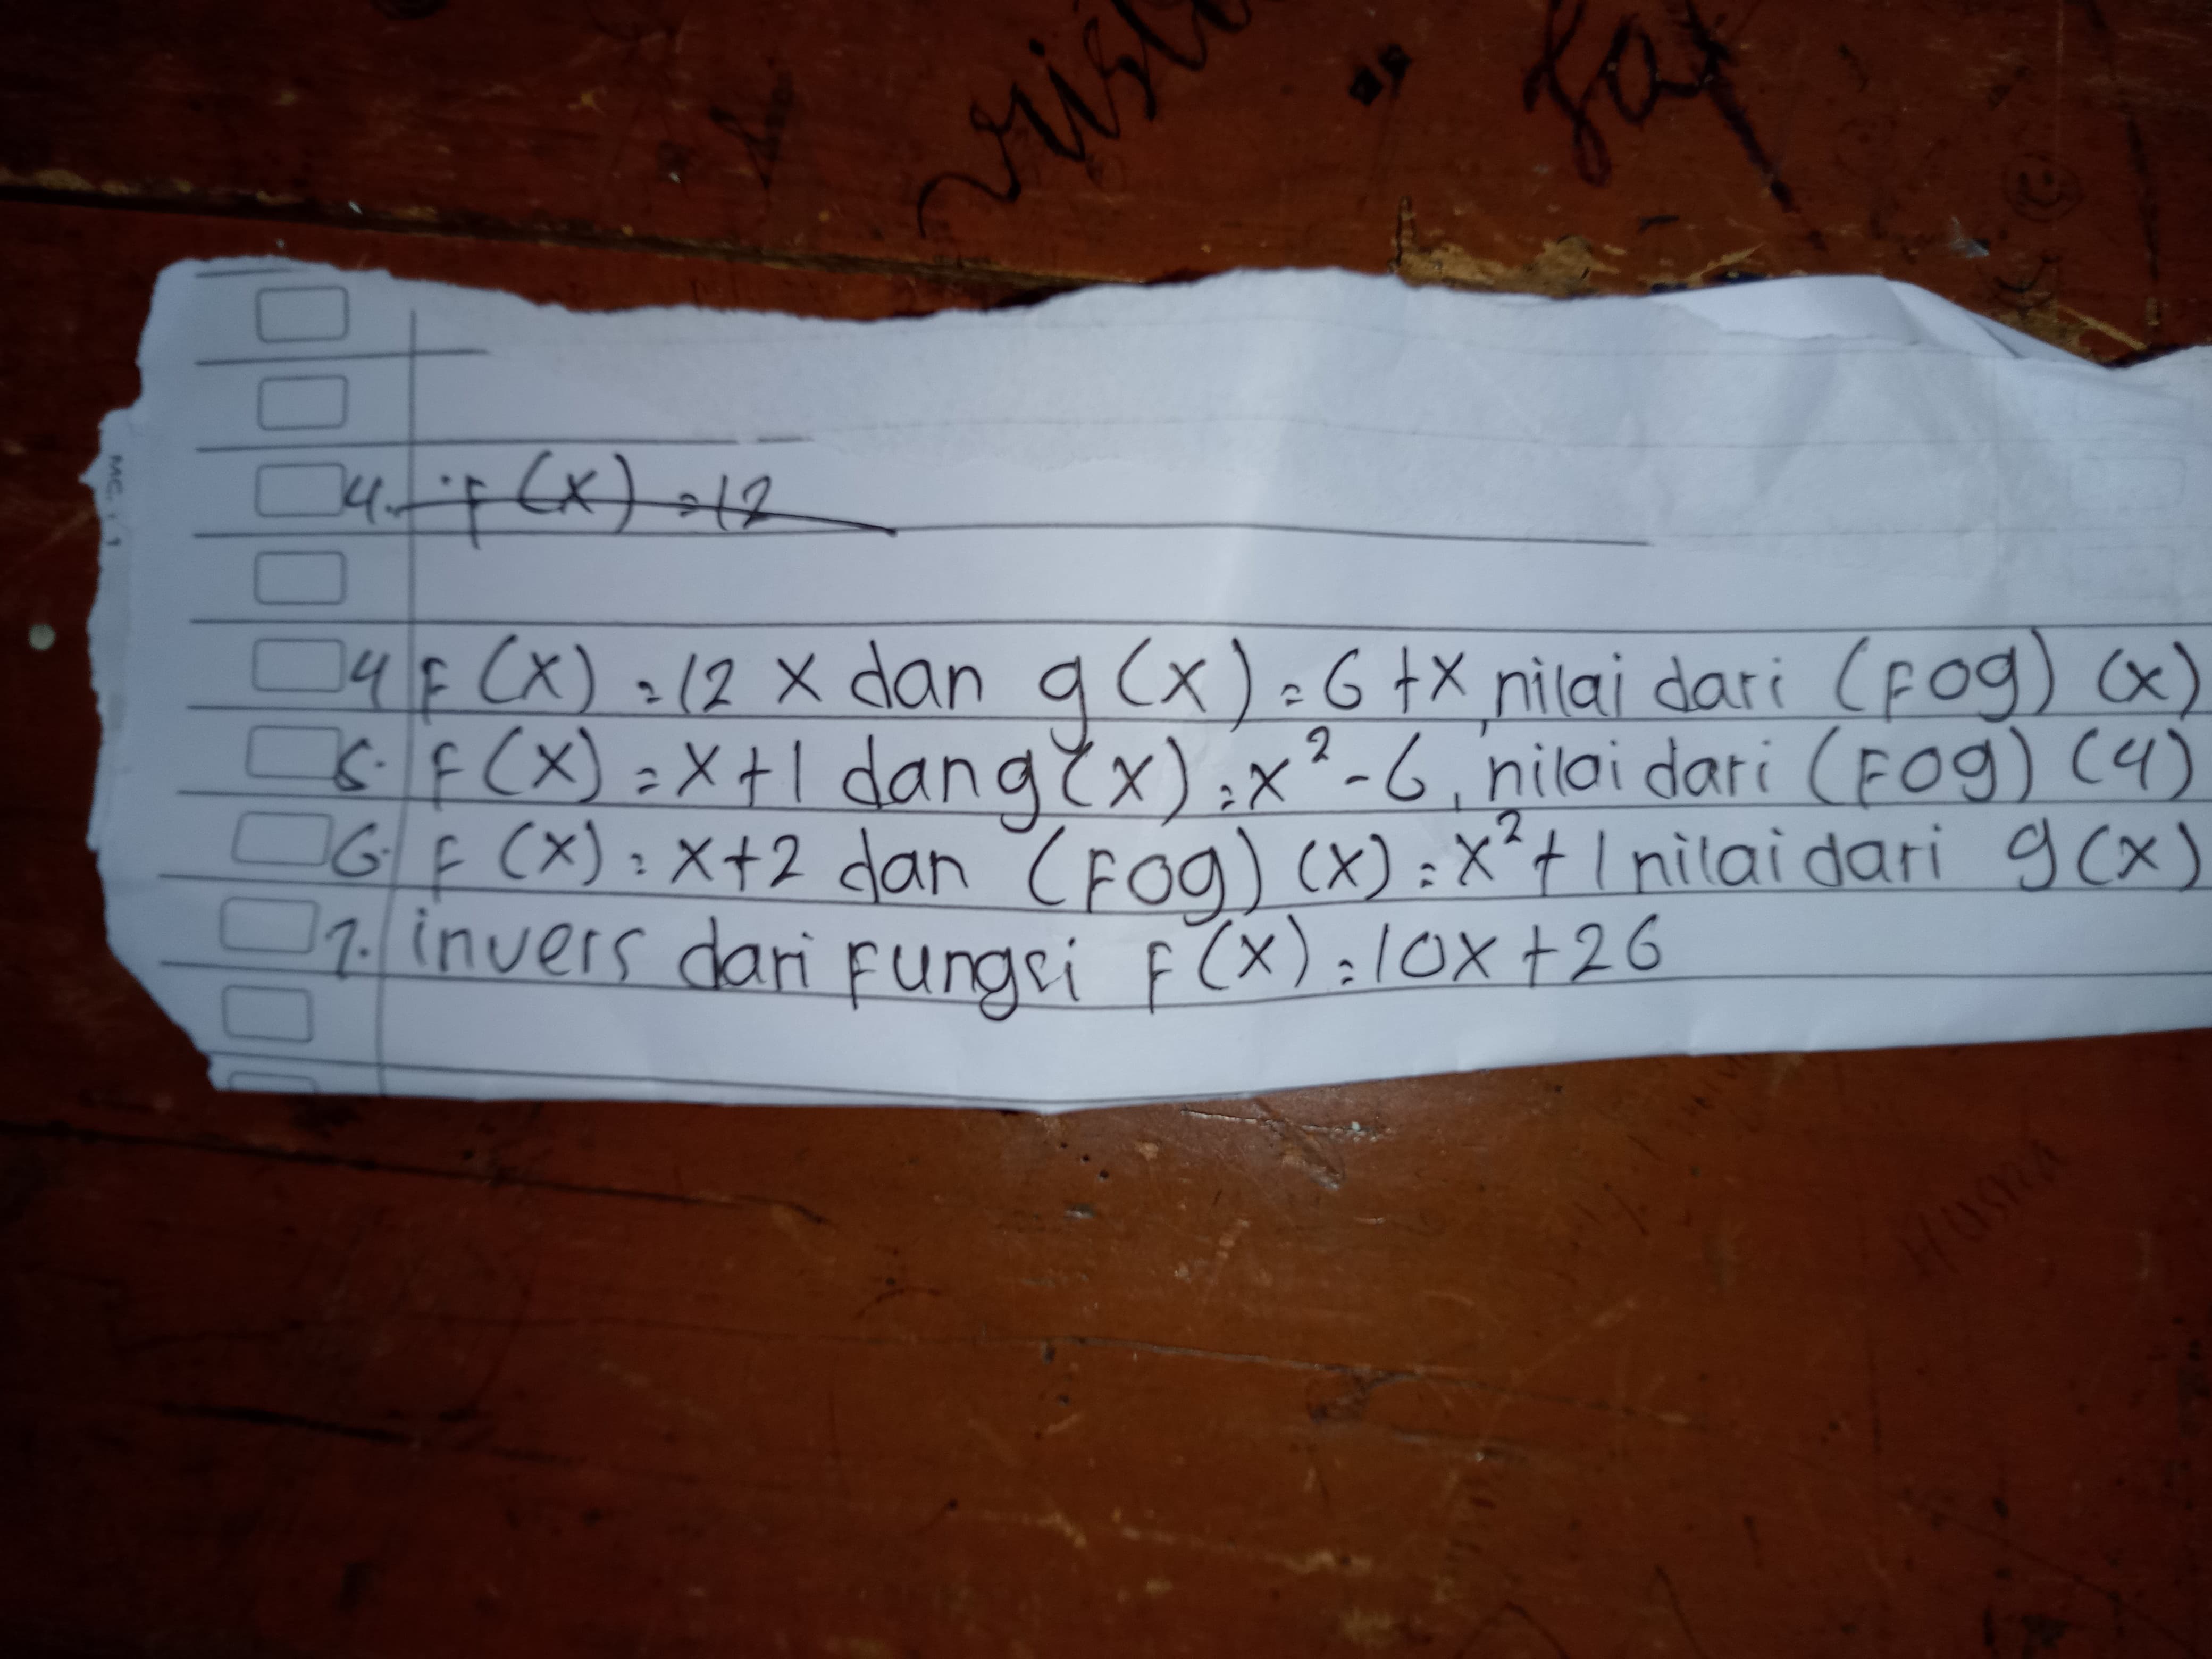 4. F(X) = 12
4 F(X) = 12 X dan g(X) = 6 + X, nilai dari (FOg) (X)
5. F(X) = X + 1 dan g(X) = X² - 6, nilai dari (FOg) (4)
6. F (X) = X + 2 dan (FOg) (X) = X² + 1 nilai dari g(X)
7. invers dari Fungsi F(X) = 10X + 26
Husna